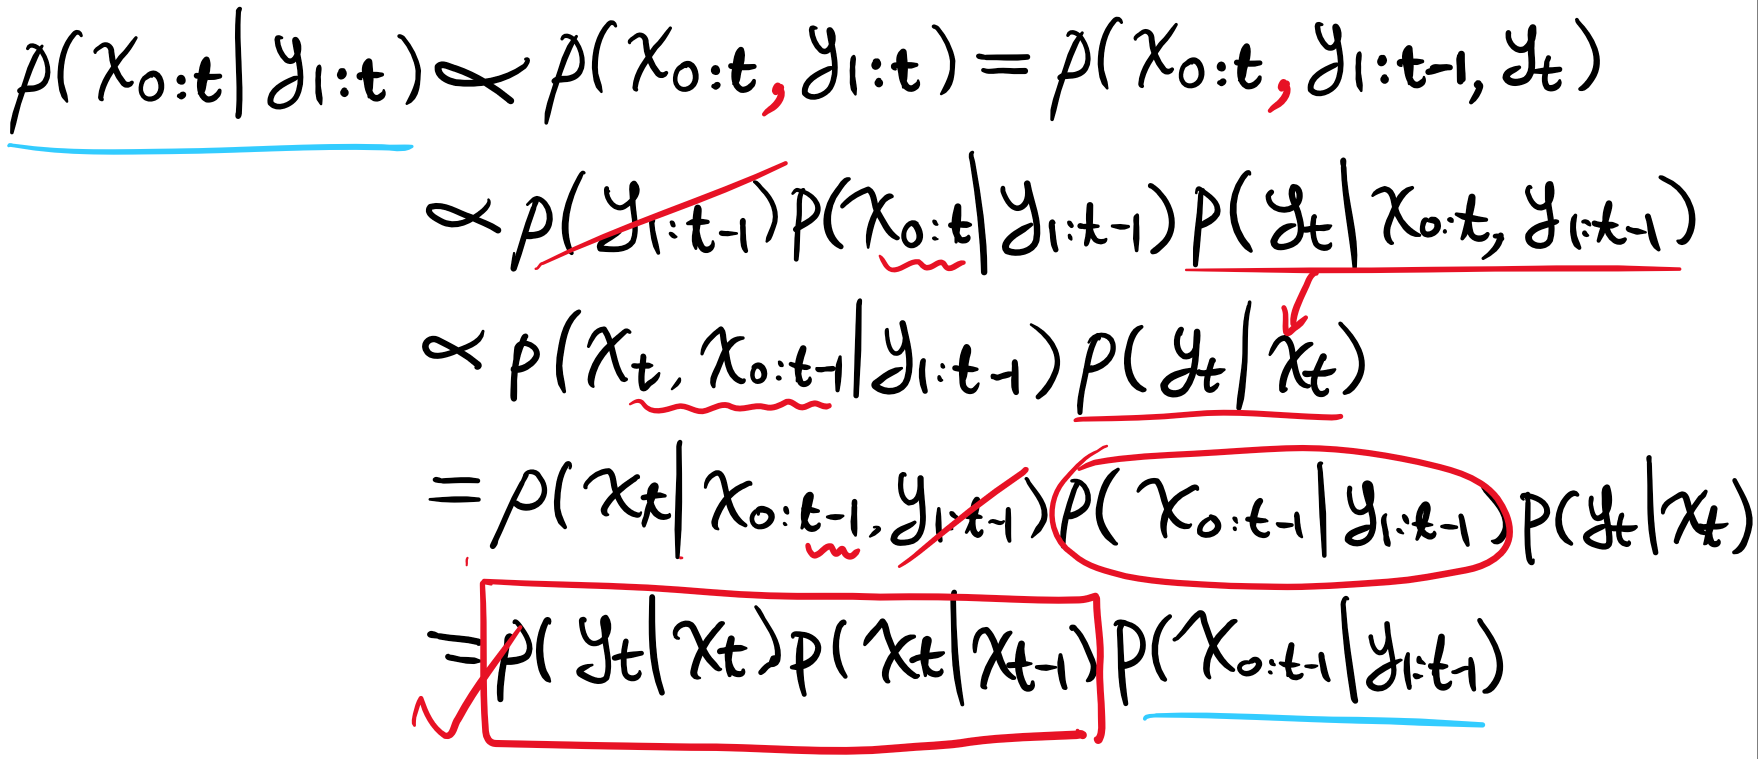 p(x₀:t | y₁:t) ∝ p(x₀:t, y₁:t) = p(x₀:t, y₁:t-1, yt)
∝ p(y₁:t-1) p(x₀:t | y₁:t-1) p(yt | x₀:t, y₁:t-1)
∝ p(xt, x₀:t-1 | y₁:t-1) p(yt | xt)
= p(xt | x₀:t-1, y₁:t-1) p(x₀:t-1 | y₁:t-1) p(yt | xt)
= p(yt | xt) p(xt | xt-1) p(x₀:t-1 | y₁:t-1)